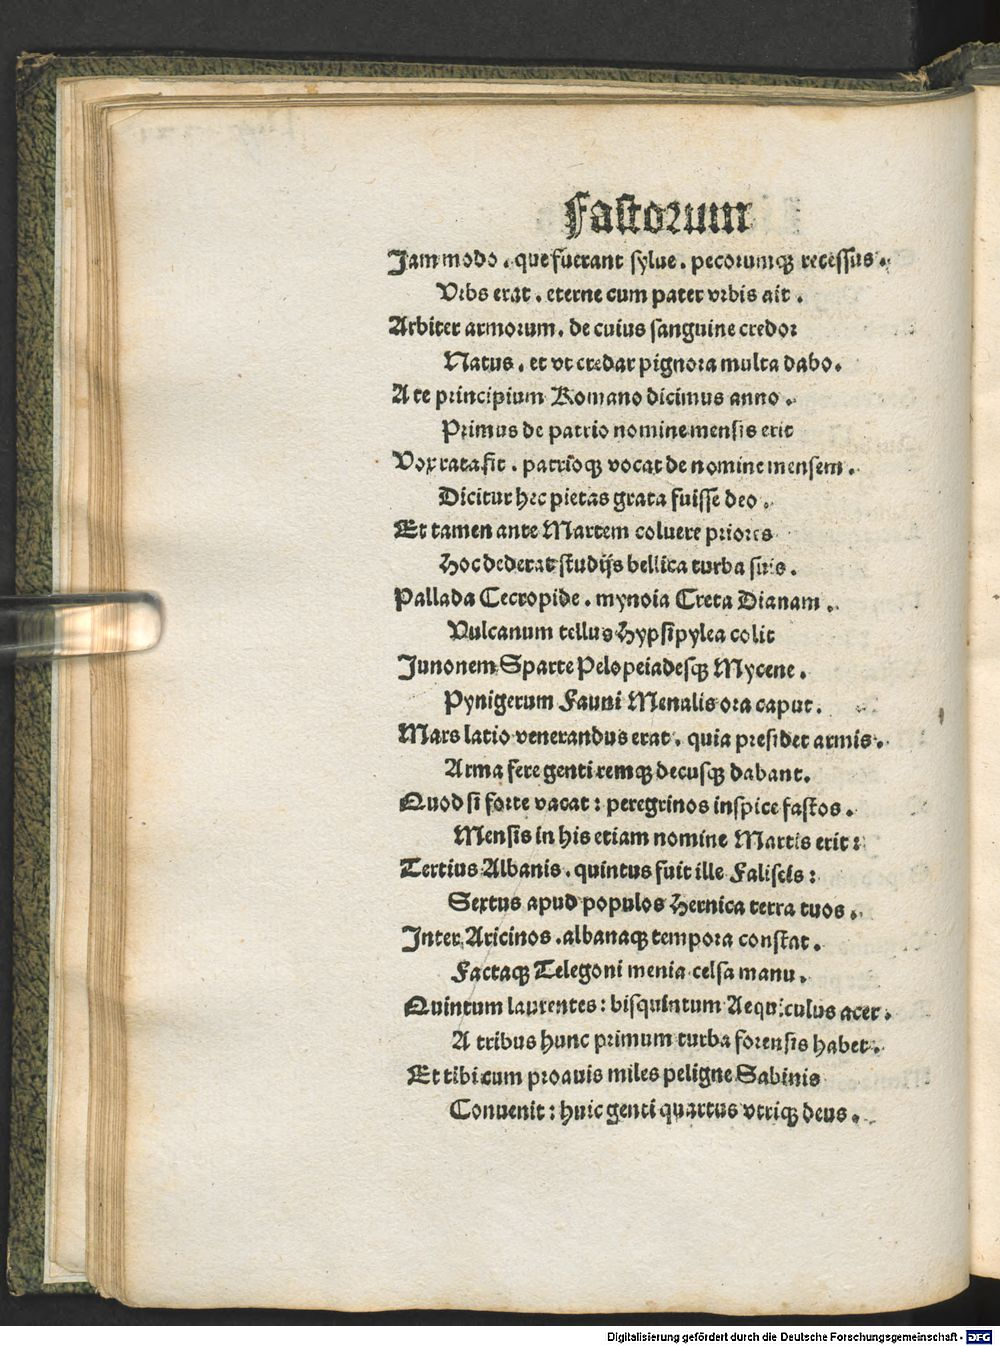 Fastorum
Jam modo . que fuerant sylve . pecorumqꝫ recessus .
Vrbs erat . eterne cum pater vrbis ait .
Arbiter armorum . de cuius sanguine credor
Natus . et vt credar pignora multa dabo .
A te principium Romano dicimus anno .
Primus de patrio nomine mensis erit
Vox rata fit . patrioqꝫ vocat de nomine mensem .
Dicitur hec pietas grata fuisse deo .
Et tamen ante Martem coluere priores
Hoc dederat studijs bellica turba suis .
Pallada Cecropide . mynoia Creta Dianam .
Vulcanum tellus Hypsipylea colit
Junonem Sparte Pelopeiadesqꝫ Mycene .
Pynigerum Fauni Menalis ora caput .
Mars latio venerandus erat . quia presidet armis .
Arma fere genti remqꝫ decusqꝫ dabant .
Quod si forte vacat : peregrinos inspice fastos .
Mensis in his etiam nomine Martis erit :
Tertius Albanis . quintus fuit ille Faliscis :
Sextus apud populos Hernica terra tuos .
Inter Aricinos . albanaqꝫ tempora constat .
Factaqꝫ Telegoni menia celsa manu .
Quintum laurentes : bisquintum Aequiculus acer .
A tribus hunc primum turba forensis habet .
Et tibi cum proauis miles peligne Sabinis
Conuenit : huic genti quartus vtriqꝫ deus .
Digitalisierung gefördert durch die Deutsche Forschungsgemeinschaft - DFG